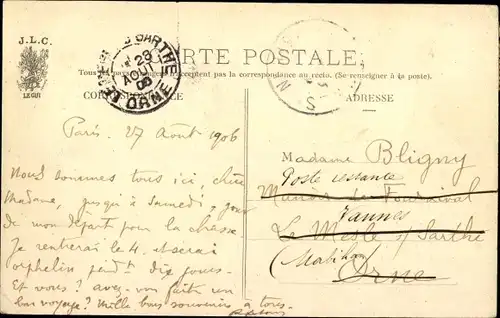 J.L.C.
LE GUI
CARTE POSTALE
Tous les pays étrangers n'acceptent pas la correspondance au recto. (Se renseigner à la poste).
CORRESPONDANCE
ADRESSE
SARTHE
28
AOUT
06
ORNE
Paris. 27 Août 1906
Nous sommes tous ici, chère
Madame, jusqu'à Samedi, jour
de mon départ pour la chasse.
Je rentrerai le 4. et serai
orphelin pendt dix jours.
Et vous? avez-vous fait un
bon voyage? Mille bons souvenirs à tous.
Madame Bligny
Poste restante
Manoir de Fourneval
Vannes
Le Mesle s/ Sarthe
(Morbihan)
Orne